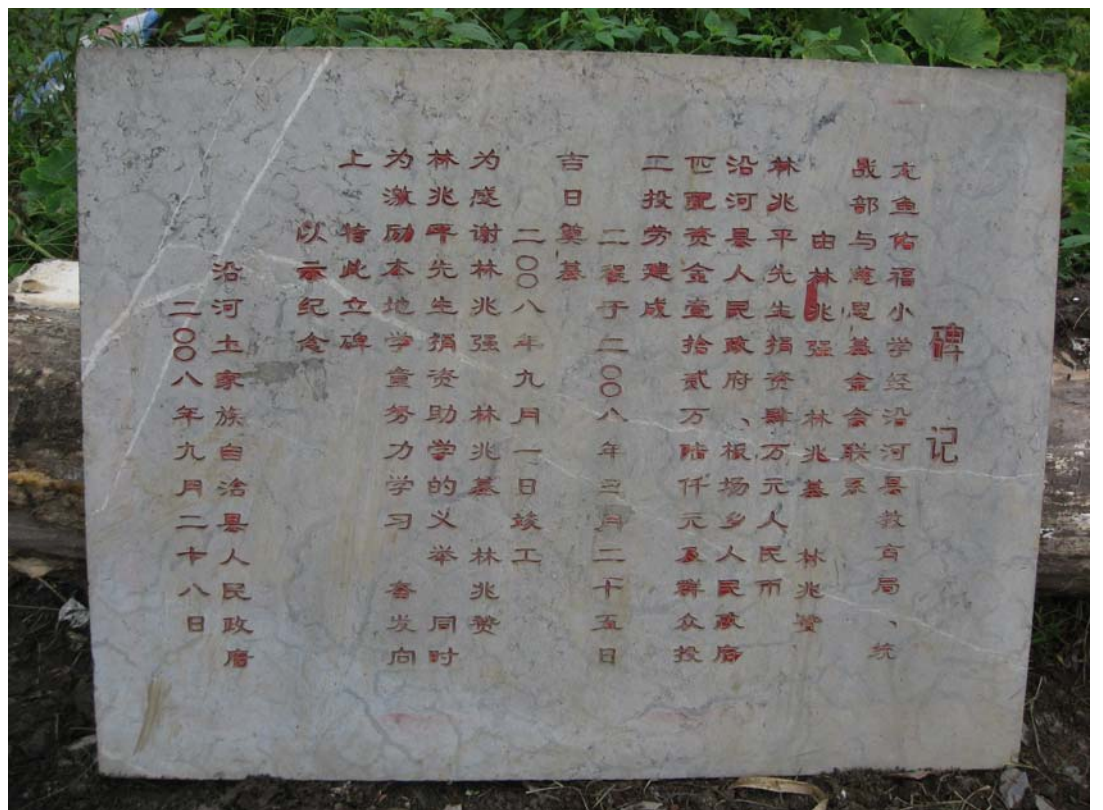 碑记
龙鱼佑福小学经沿河县教育局、统
战部与慈恩基金会联系
由林兆强 林兆基 林兆赞
林兆平先生捐资肆万元人民币
沿河县人民政府、板场乡人民政府
匹配资金壹拾贰万陆仟元及群众投
工投劳建成
工程于二〇〇八年三月二十五日
吉日奠基
二〇〇八年九月一日竣工
为感谢林兆强 林兆基 林兆赞
林兆平先生捐资助学的义举 同时
为激励本地学童努力学习 奋发向
上 特此立碑
以示纪念
沿河土家族自治县人民政府
二〇〇八年九月二十八日